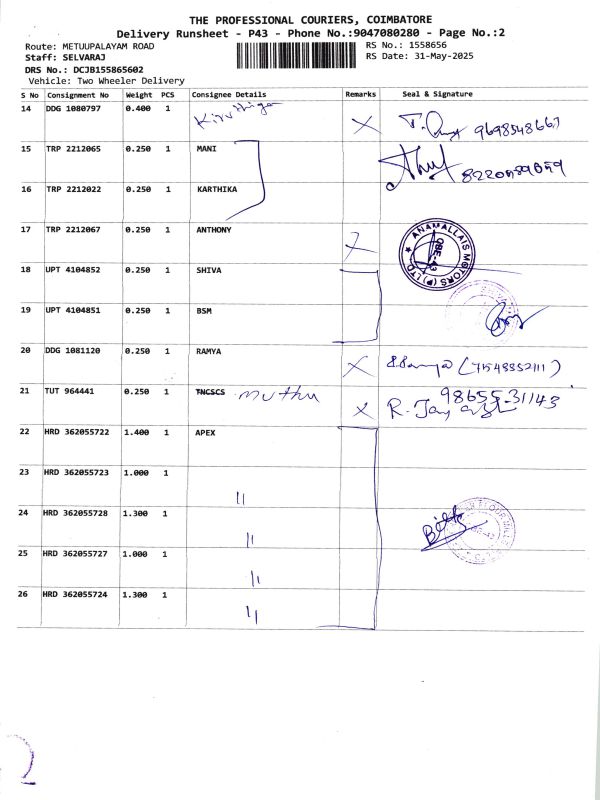 THE PROFESSIONAL COURIERS, COIMBATORE
Delivery Runsheet - P43 - Phone No.:9047080280 - Page No.:2
Route: METUUPALAYAM ROAD RS No.: 1558656
Staff: SELVARAJ RS Date: 31-May-2025
DRS No.: DCJB155865602
Vehicle: Two Wheeler Delivery
S No Consignment No Weight PCS Consignee Details Remarks Seal & Signature
14 DDG 1080797 0.400 1 Kiruthiga X 9698548667
15 TRP 2212065 0.250 1 MANI
8220589059
16 TRP 2212022 0.250 1 KARTHIKA
17 TRP 2212067 0.250 1 ANTHONY ANAMALLAIS MOTORS (P) LTD
18 UPT 4104852 0.250 1 SHIVA
19 UPT 4104851 0.250 1 BSM
20 DDG 1081120 0.250 1 RAMYA X
21 TUT 964441 0.250 1 TNCSCS Muthu X 9865531143
22 HRD 362055722 1.400 1 APEX
23 HRD 362055723 1.000 1 11
24 HRD 362055728 1.300 1 11
25 HRD 362055727 1.000 1 11
26 HRD 362055724 1.300 1 11
2